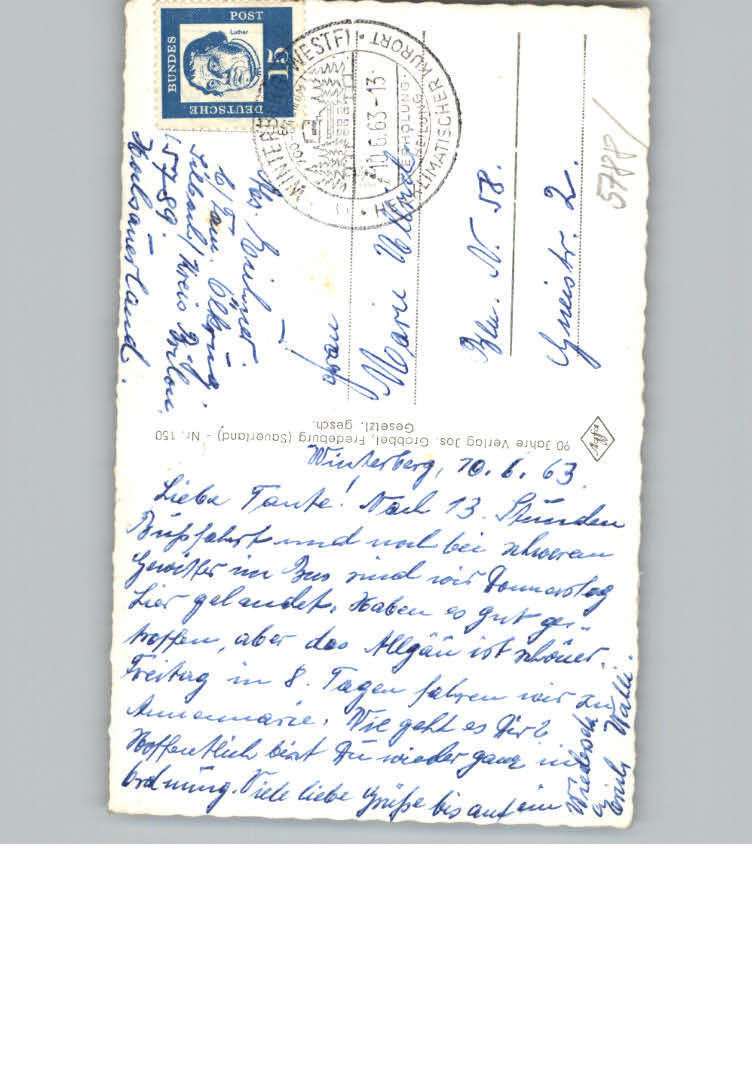 DEUTSCHE
BUNDES
POST
15
Luther
WINTERBERG (WESTF)
10.6.63-13
HEILKLIMATISCHER KURORT
ERHOLUNG
HEILUNG
5788/
Abs.
b/Fam.
Kreis Brilon,
5789.
Hochsauerland.
Marie
Bln. N. 58.
Gneiststr. 2.
90 Jahre Verlag Jos. Grobbel, Fredeburg (Sauerland) - Nr. 150
Gesetzl. gesch.
Agfa
Winterberg, 10.6.63.
Liebe Tante! Nach 13 Stunden
Busfahrt und noch bei schweren
Gewitter im Bus sind wir Donnerstag
hier gelandet. Haben es gut ge-
troffen, aber das Allgäu ist schöner.
Freitag in 8 Tagen fahren wir zu
Annemarie. Wie geht es Dir?
Hoffentlich bist Du wieder ganz in
Ordnung. Viele liebe Grüße bis auf ein
Wiedersehn
Erich Walli.